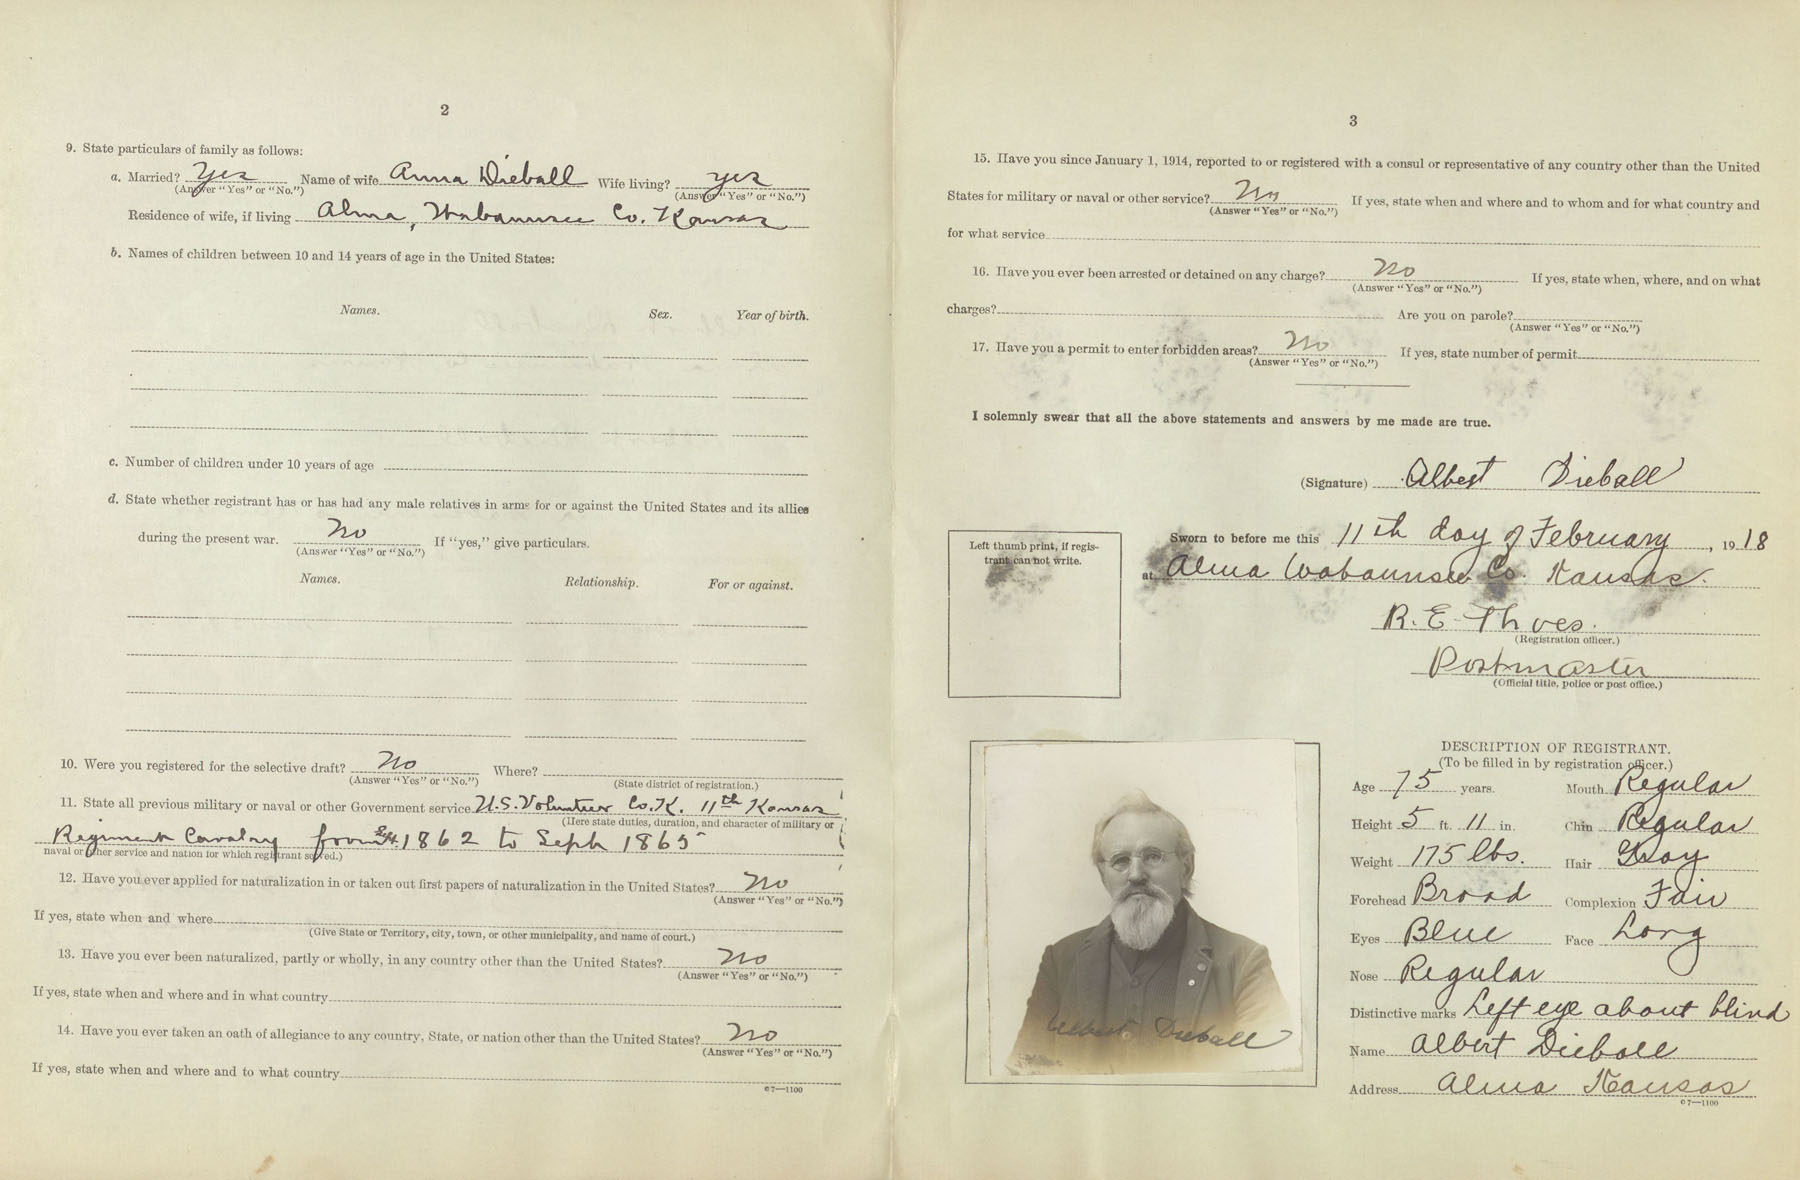 2
9. State particulars of family as follows:
a. Married? Yes Name of wife Anna Dieball Wife living? yes
(Answer "Yes" or "No.") (Answer "Yes" or "No.")
Residence of wife, if living Alma, Wabaunsee Co. Kansas
b. Names of children between 10 and 14 years of age in the United States:
Names. Sex. Year of birth.
c. Number of children under 10 years of age
d. State whether registrant has or has had any male relatives in arms for or against the United States and its allies
during the present war. No If "yes," give particulars.
(Answer "Yes" or "No.")
Names. Relationship. For or against.
10. Were you registered for the selective draft? No Where?
(Answer "Yes" or "No.") (State district of registration.)
11. State all previous military or naval or other Government service U.S. Volunteer Co. K. 11th Kansas
(Here state duties, duration, and character of military or
Regiment Cavalry from Sept. 1862 to Sept 1865
naval or other service and nation for which registrant served.)
12. Have you ever applied for naturalization in or taken out first papers of naturalization in the United States? No
(Answer "Yes" or "No.")
If yes, state when and where
(Give State or Territory, city, town, or other municipality, and name of court.)
13. Have you ever been naturalized, partly or wholly, in any country other than the United States? No
(Answer "Yes" or "No.")
If yes, state when and where and in what country
14. Have you ever taken an oath of allegiance to any country, State, or nation other than the United States? No
(Answer "Yes" or "No.")
If yes, state when and where and to what country
c7—1100
3
15. Have you since January 1, 1914, reported to or registered with a consul or representative of any country other than the United
States for military or naval or other service? No If yes, state when and where and to whom and for what country and
(Answer "Yes" or "No.")
for what service
16. Have you ever been arrested or detained on any charge? No If yes, state when, where, and on what
(Answer "Yes" or "No.")
charges? Are you on parole?
(Answer "Yes" or "No.")
17. Have you a permit to enter forbidden areas? No If yes, state number of permit
(Answer "Yes" or "No.")
I solemnly swear that all the above statements and answers by me made are true.
(Signature) Albert Dieball
Left thumb print, if regis-
trant can not write.
Sworn to before me this 11th day of February, 1918
at Alma Wabaunsee Co. Kansas.
R. E. Thoes.
(Registration officer.)
Postmaster
(Official title, police or post office.)
Albert Dieball
DESCRIPTION OF REGISTRANT.
(To be filled in by registration officer.)
Age 75 years. Mouth Regular
Height 5 ft. 11 in. Chin Regular
Weight 175 lbs. Hair Gray
Forehead Broad Complexion Fair
Eyes Blue Face Long
Nose Regular
Distinctive marks Left eye about blind
Name Albert Dieball
Address Alma Kansas
c7—1100